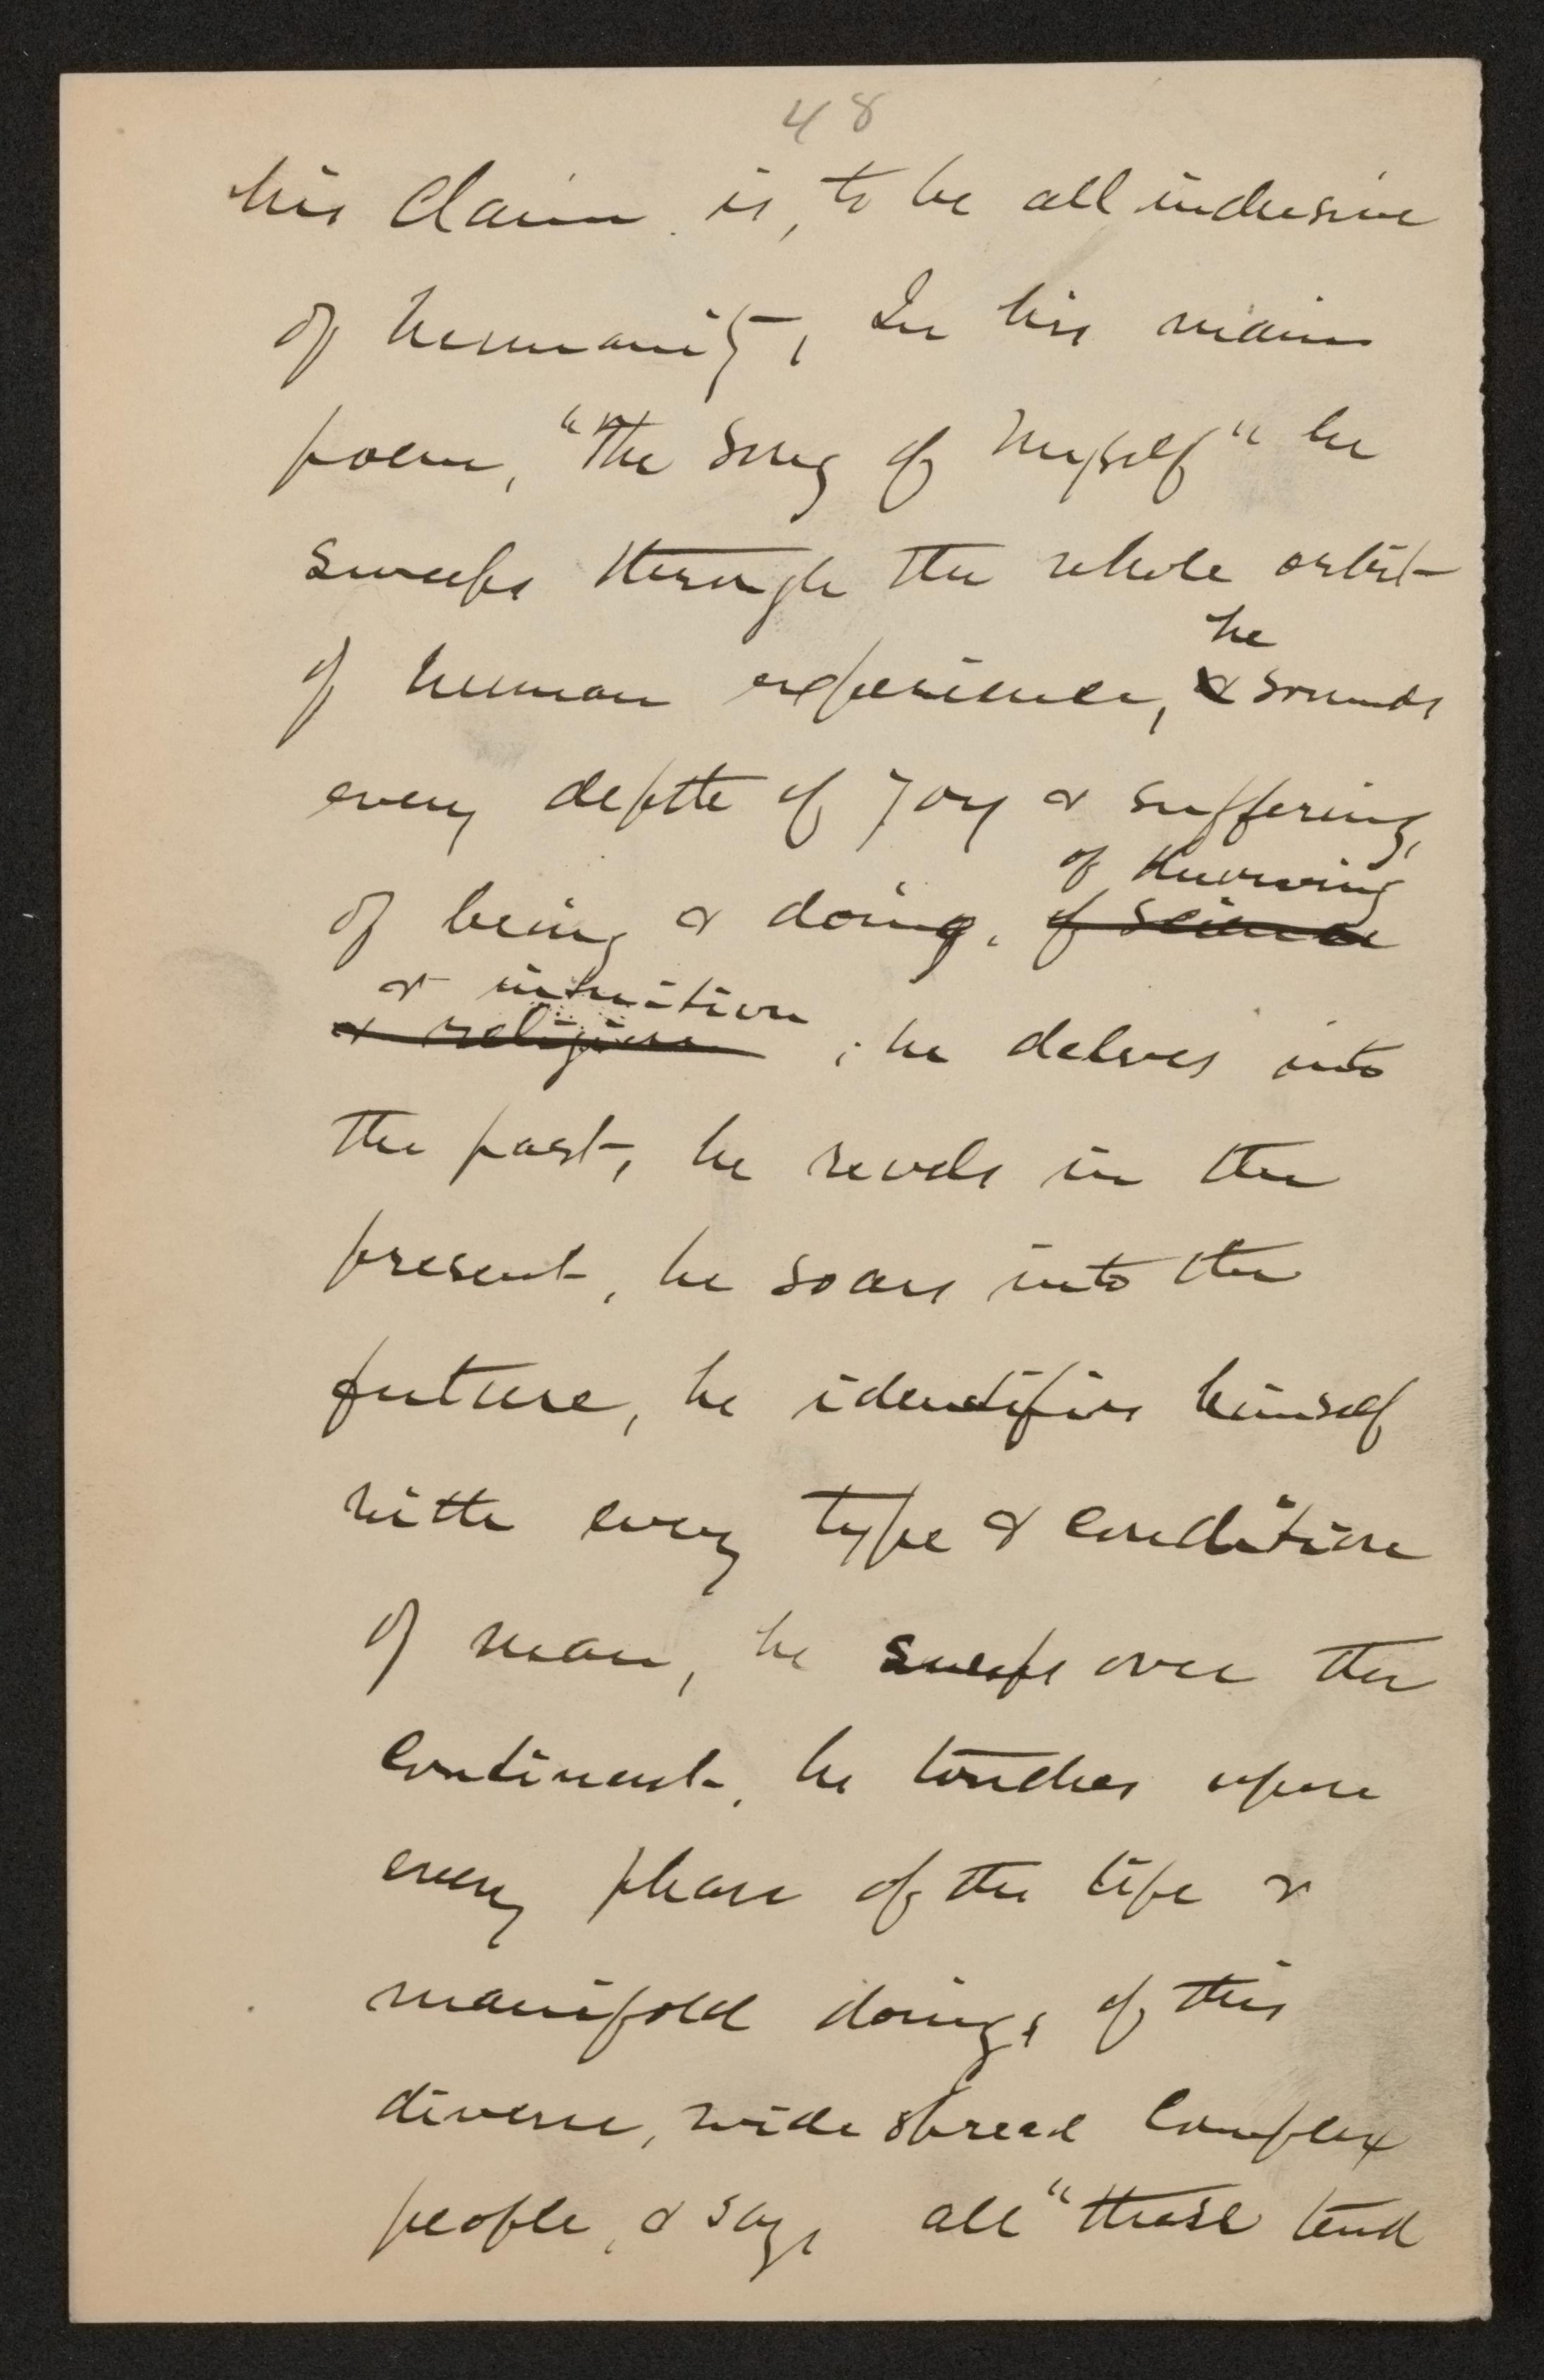 48
his claim is, to be all inclusive
of humanity, In his main
poem, "The Song of Myself" he
sweeps through the whole orbit
he
of human experience, & sounds
every depth of joy & suffering,
of knowing
of being & doing, of science
& intuition
& religion ; he delves into
the past, he revels in the
present, he soars into the
future, he identifies himself
with every type & condition
of man, he sweeps over the
continent, he touches upon
every phase of the life &
manifold doings of this
diverse, wide spread complex
people, & says all "these tend